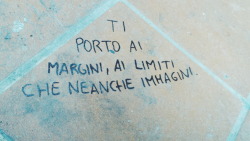 TI
PORTO AI
MARGINI, AI LIMITI
CHE NEANCHE IMMAGINI.